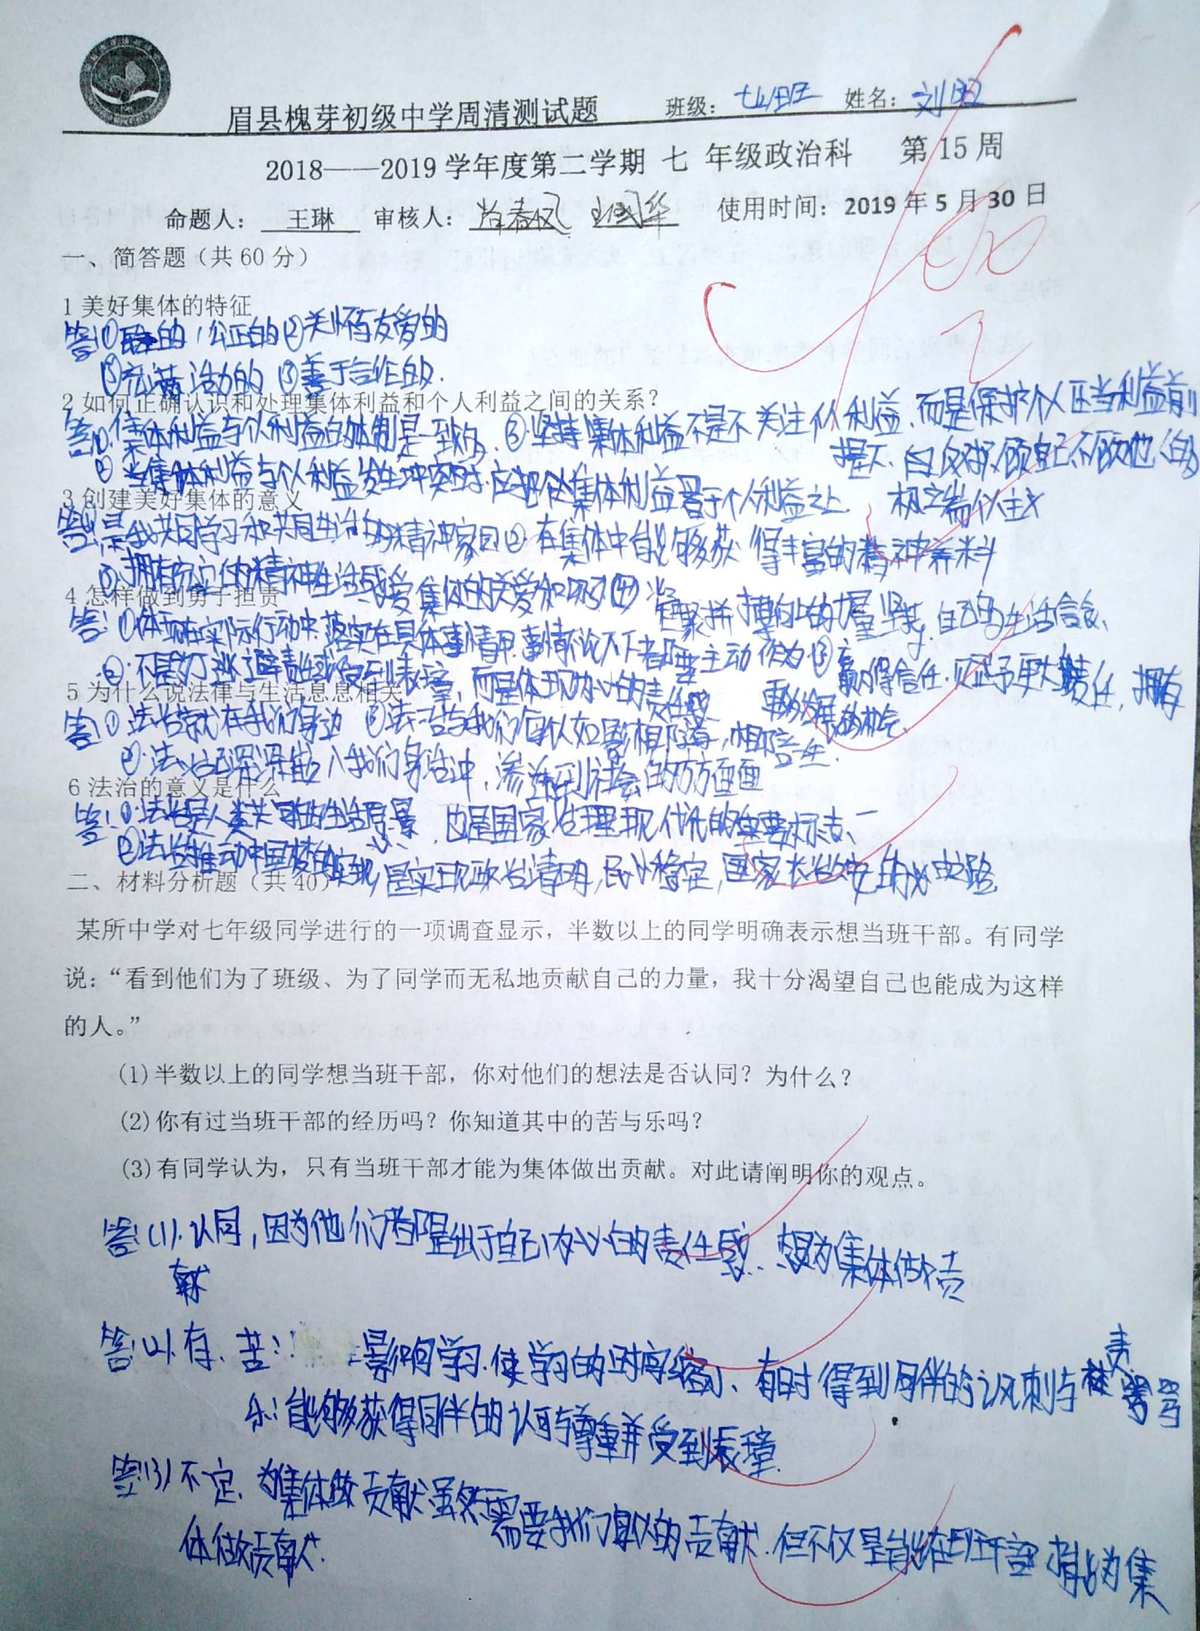 眉县槐芽初级中学周清测试题 班级: 七(2)班 姓名: 刘
2018——2019学年度第二学期 七 年级政治科 第15周
命题人: 王琳 审核人: 使用时间: 2019年5月30日
100
一、简答题(共60分)
1 美好集体的特征
答:① 的,公正的②关怀与友爱的
③充满活力的 ③善于合作的.
2 如何正确认识和处理集体利益和个人利益之间的关系?
答 集体利益与个人利益 是一致的. ③坚持集体利益不是不关注个人利益,而是保护个人正当利益前
提下,
② 当集体利益与个人利益发生冲突时,应把 集体利益置于个人利益之上 极端个人主义
3 创建美好集体的意义
答 是我共同学习和共同生活的精神家园②在集体中能够获得丰富的精神养料
③拥有充实的精神生活感受集体的关爱和
4 怎样做到勇于担责
答:①体现在实际行动中,落实在具体事情里,事情无论大小都要主动作为③赢得信任,
②.不是为了逃避责 或受到表璋,而是体现内心的责任感
5 为什么说法律与生活息息相关
答①法治就在我们身边 ③法 与我们每个人如影相随,相伴一生.
②.法 已深深嵌入我们 生活中,渗透到社会的方方面面
6 法治的意义是什么
答:①.法治是人类共同的生活愿景,也是国家治理现代化的重要标志、
②法治推动中国梦的实现,是实现政治清明,民心稳定,国家长治久安的必由之路
二、材料分析题(共40)
某所中学对七年级同学进行的一项调查显示，半数以上的同学明确表示想当班干部。有同学
说:“看到他们为了班级、为了同学而无私地贡献自己的力量，我十分渴望自己也能成为这样
的人。”
(1)半数以上的同学想当班干部，你对他们的想法是否认同？为什么？
(2)你有过当班干部的经历吗？你知道其中的苦与乐吗？
(3)有同学认为，只有当班干部才能为集体做出贡献。对此请阐明你的观点。
答:(1).认同,因为他们都是出于自己内心的责任感、想为集体做贡
献
答:(2).有、苦: 影响学习.使学习的时间缩小、有时得到同伴的讽刺与责骂
乐:能够获得同伴的认可与尊重并受到表璋.
答:(3)不一定、为集体做贡献虽然需要我们每个人的贡献.但不仅是 班干部才能为集
体做贡献.